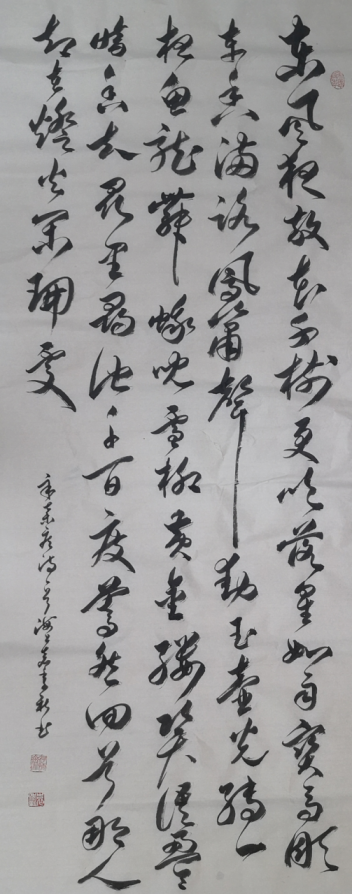 东风夜放花千树更吹落星如雨宝马雕
车香满路凤箫声动玉壶光转一
夜鱼龙舞蛾儿雪柳黄金缕笑语盈盈
暗香去众里寻他千百度蓦然回首那人
却在灯火阑珊处
辛弃疾词